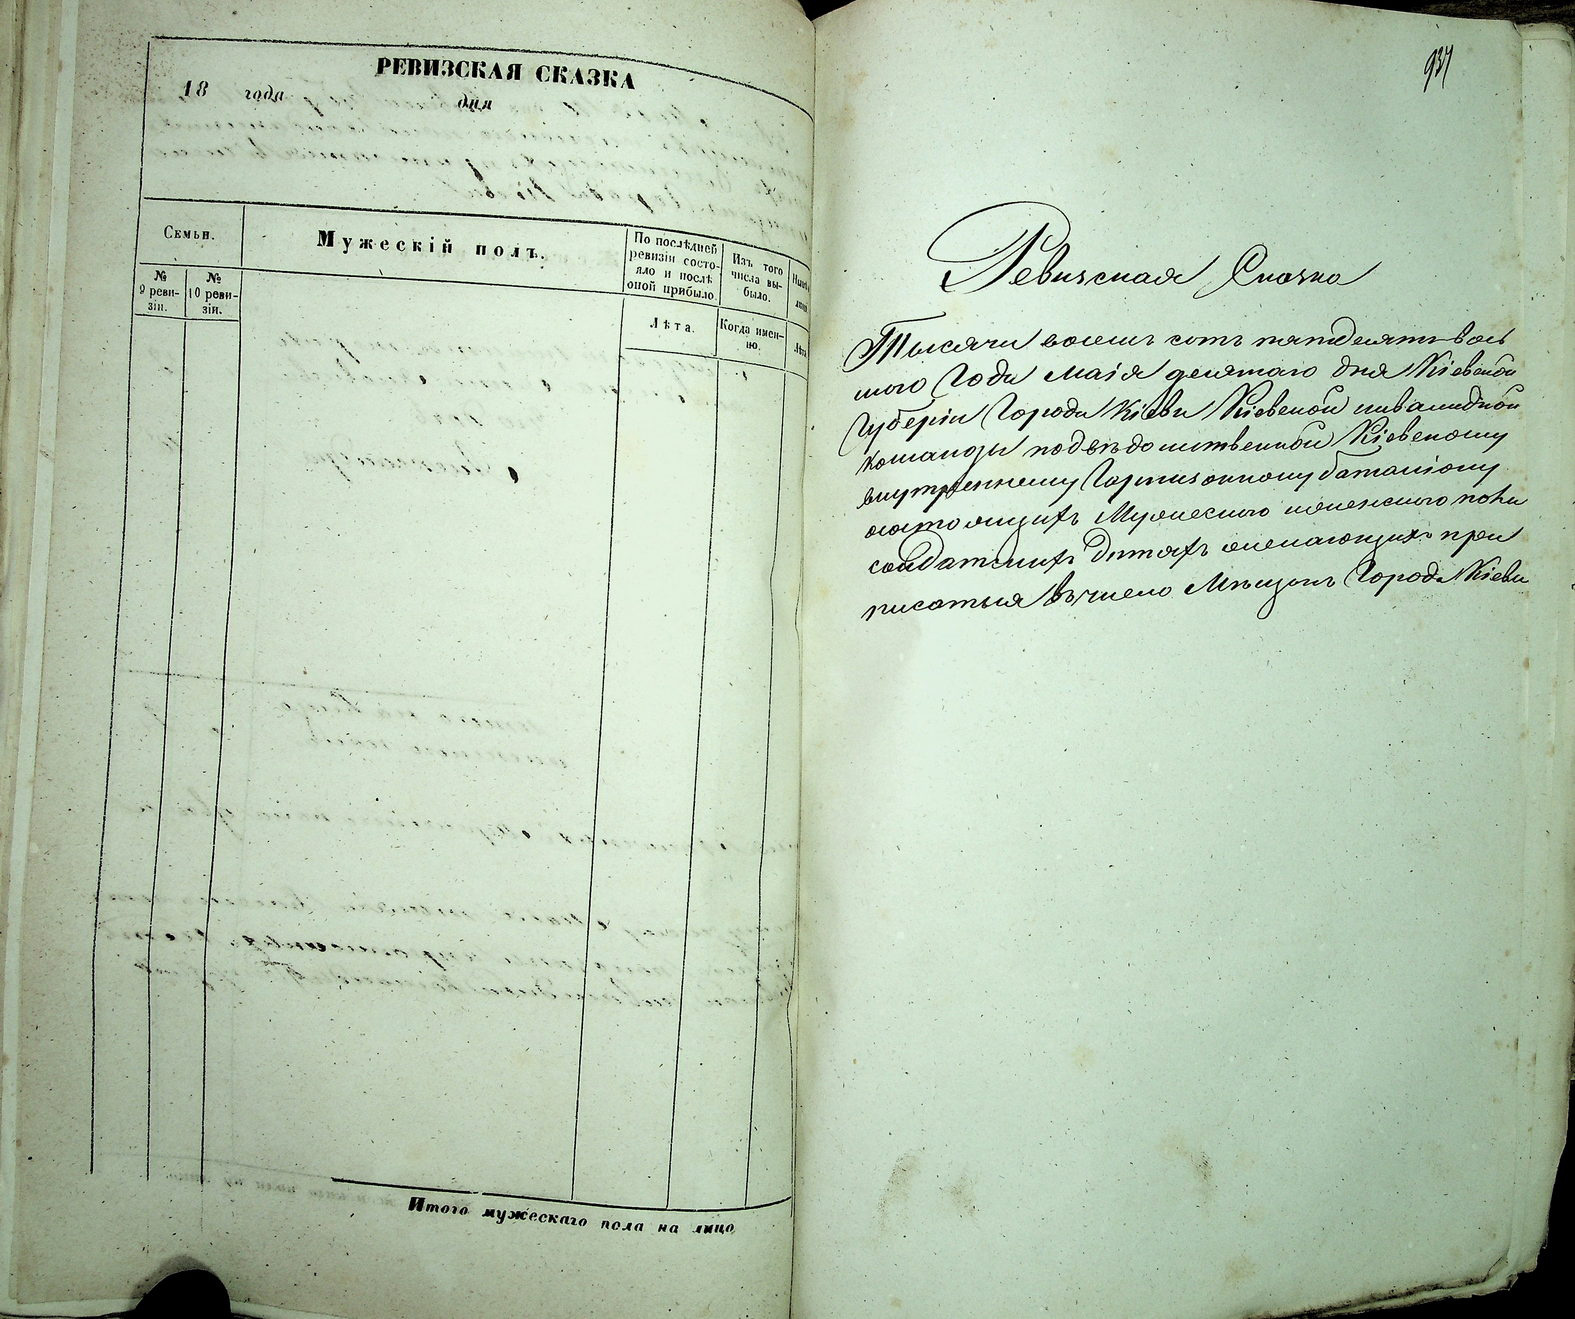 РЕВИЗСКАЯ СКАЗКА
18 года дня
Семьи.
Мужескій полъ.
По послѣдней ревизіи состояло и послѣ оной прибыло.
Изъ того числа выбыло.
№ 9 ревизіи.
№ 10 ревизіи.
Лѣта.
Когда именно.
Лѣта
Итого мужескаго пола на лицо
937
Ревизская Сказка
Тысяча восемь сотъ пятдесятъ вось
мого Года маія десятаго дня Кіевской
Губерніи Города Кіева Кіевской инвалидной
команды подвѣдомственной Кіевскому
внутреннему Гарнизонному баталіону
состоящихъ Мужеского и женского пола
солдатскихъ дѣтяхъ желающихъ при
писатся въ число Мѣщанъ Города Кіева